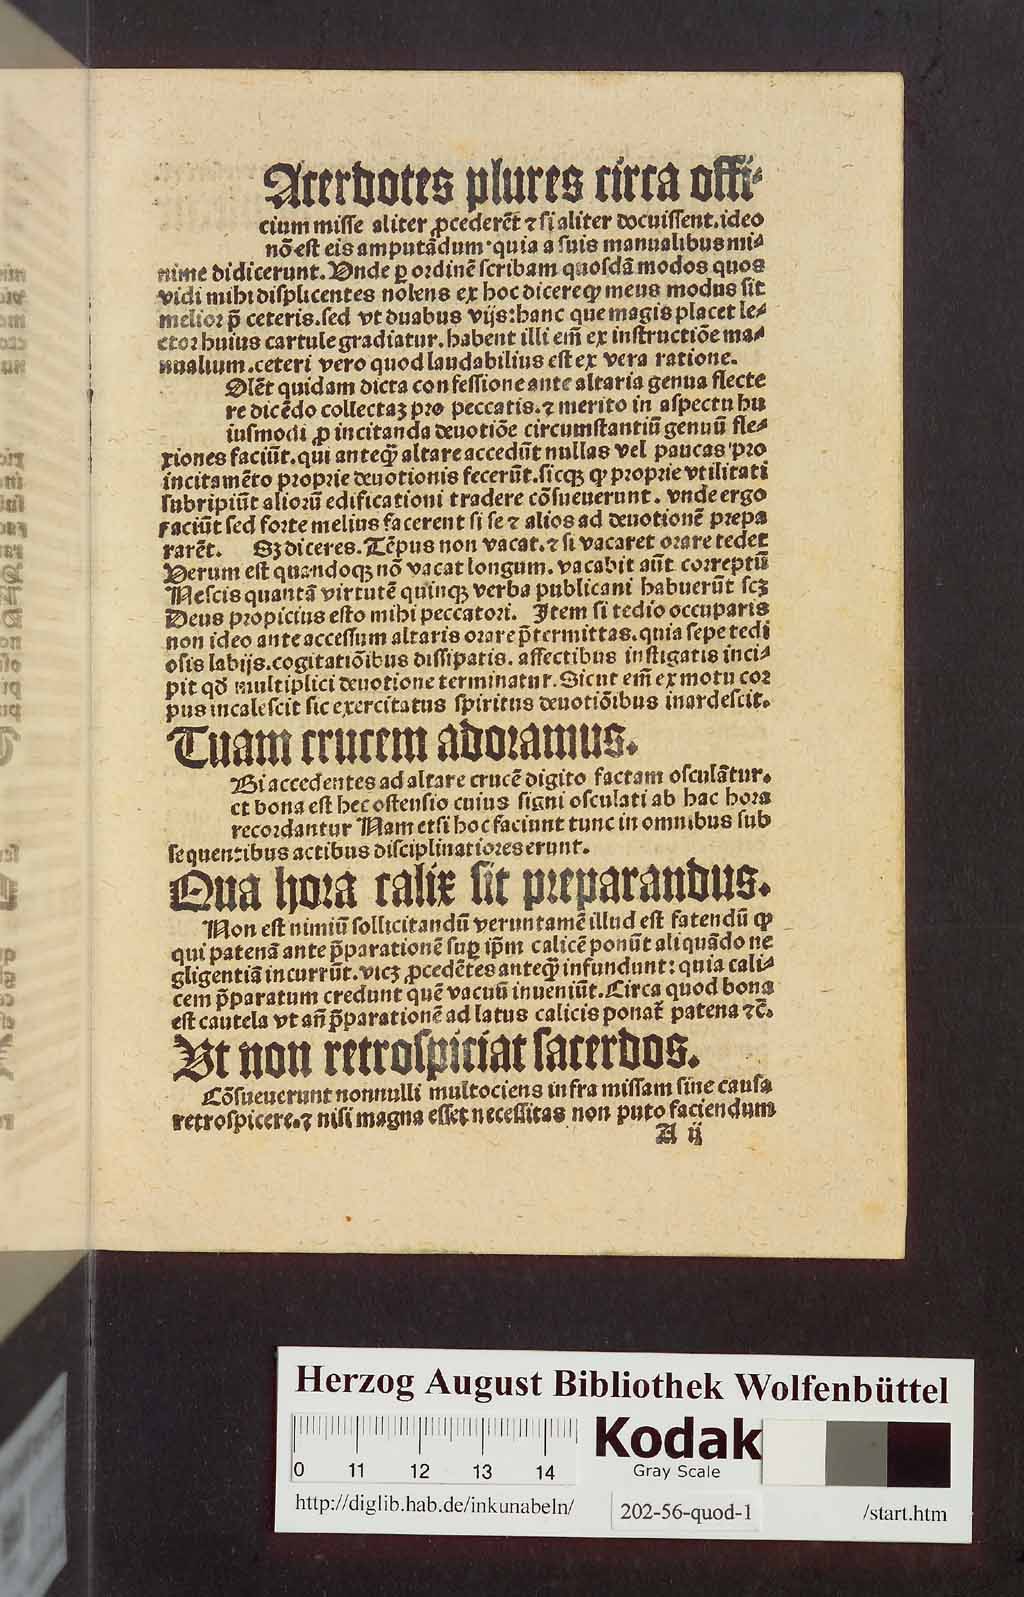 Acerdotes plures circa offi⸗
cium misse aliter ꝓcederēt ⁊ si aliter docuissent. ideo
nō est eis amputādum· quia a suis manualibus mi⸗
nime didicerunt. Unde ꝑ ordinē scribam quosdā modos quos
vidi mihi displicentes nolens ex hoc dicere qꝙ meus modus sit
melior p̄ ceteris. sed vt duabus vijs: hanc que magis placet le⸗
ctor huius cartule gradiatur. habent illi em̄ ex instructiōe ma⸗
nualium. ceteri vero quod laudabilius est ex vera ratione.
Olēt quidam dicta confessione ante altaria genua flecte
re dicēdo collectaꝫ pro peccatis. ⁊ merito in aspectu hu
iusmodi ꝓ incitanda deuotiōe circumstantiū genuū fle⸗
xiones faciūt. qui anteqꝫ altare accedūt nullas vel paucas pro
incitamēto proprie deuotionis fecerūt. sicqꝫ ꝙ proprie vtilitati
subripiūt aliorū edificationi tradere cōsueuerunt. vnde ergo
faciūt sed forte melius facerent si se ⁊ alios ad deuotionē prepa
rarēt. Sꝫ diceres. Tēpus non vacat. ⁊ si vacaret orare tedet
Verum est quandoqꝫ nō vacat longum. vacabit aūt correptū
Nescis quantā virtutē quinqꝫ verba publicani habuerūt scꝫ
Deus propicius esto mihi peccatori. Item si tedio occuparis
non ideo ante accessum altaris orare p̄termittas. quia sepe tedi
osis labijs. cogitatiōibus dissipatis. affectibus instigatis inci⸗
pit qď multiplici deuotione terminatur. Sicut em̄ ex motu cor
pus incalescit sic exercitatus spiritus deuotiōibus inardescit.
Tuam crucem adoramus.
Bi accedentes ad altare crucē digito factam osculātur.
et bona est hec ostensio cuius signi osculati ab hac hora
recordantur Nam etsi hoc faciunt tunc in omnibus sub
sequentibus actibus disciplinatiores erunt.
Qua hora calix sit preparandus.
Non est nimiū sollicitandū veruntamē illud est fatendū ꝙ
qui patenā ante p̄parationē suꝑ ip̄m calicē ponūt aliquādo ne
gligentiā incurrūt. vicꝫ ꝓcedētes anteqꝫ infundunt: quia cali⸗
cem p̄paratum credunt quē vacuū inueniūt. Circa quod bona
est cautela vt añ p̄parationē ad latus calicis ponaᷣt patena ⁊c̄.
Ut non retrospiciat sacerdos.
Cōsueuerunt nonnulli multociens infra missam sine causa
retrospicere. ⁊ nisi magna esset necessitas non puto faciendum
A ij
Herzog August Bibliothek Wolfenbüttel
0 11 12 13 14
Kodak
Gray Scale
http://diglib.hab.de/inkunabeln/ 202-56-quod-1 /start.htm